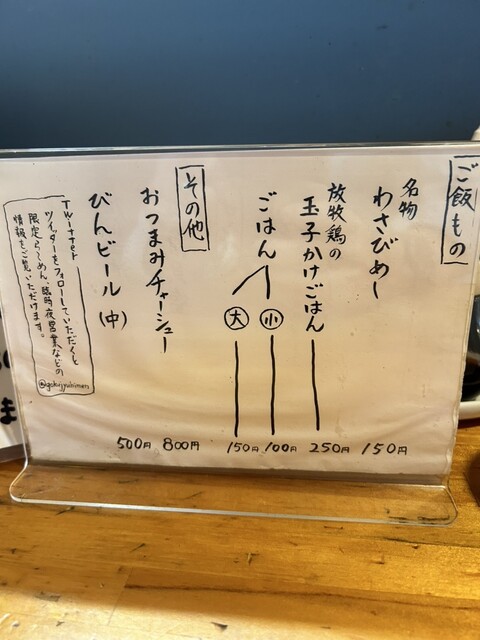 ご飯もの
名物
わさびめし
150円
放牧鶏の
玉子かけごはん
250円
ごはん
小
100円
大
150円
その他
おつまみチャーシュー
800円
びんビール(中)
500円
Twitter
ツイッターをフォローしていただくと
限定らーめん、臨時夜営業などの
情報をご覧いただけます。